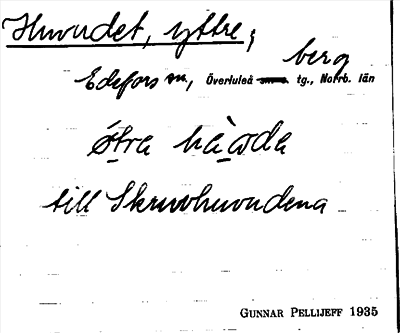 Huvudet, yttre;
berg
Edefors sn, Överluleå tg., Norrb. län
till Skruvhuvudena
GUNNAR PELLIJEFF 1935